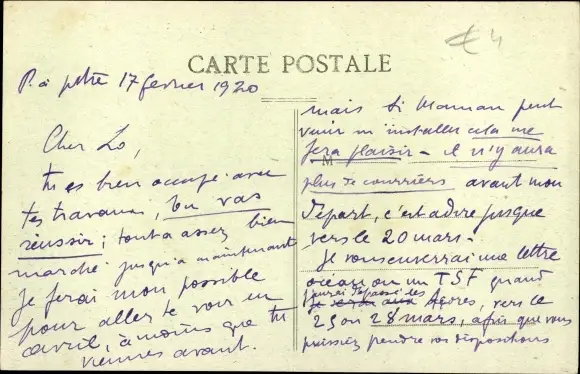 € 4
CARTE POSTALE
P. à pitre 17 fevrier 1920
Cher Lo,
tu es bien occupé avec
tes travaux, tu vas
réussir ; tout a assez bien
marché jusqu'à maintenant
Je ferai mon possible
pour aller te voir en
avril, à moins que tu
viennes avant.
mais si Maman peut
venir m'installer cela me
fera plaisir - il n'y aura
M
plus de courriers avant mon
départ, c'est à dire jusque
vers le 20 mars -
Je vous enverrai une lettre
océan ou un TSF quand
j'aurai dépassé les
je serai aux Açores, vers le
25 ou 28 mars, afin que vous
puissiez prendre vos dispositions